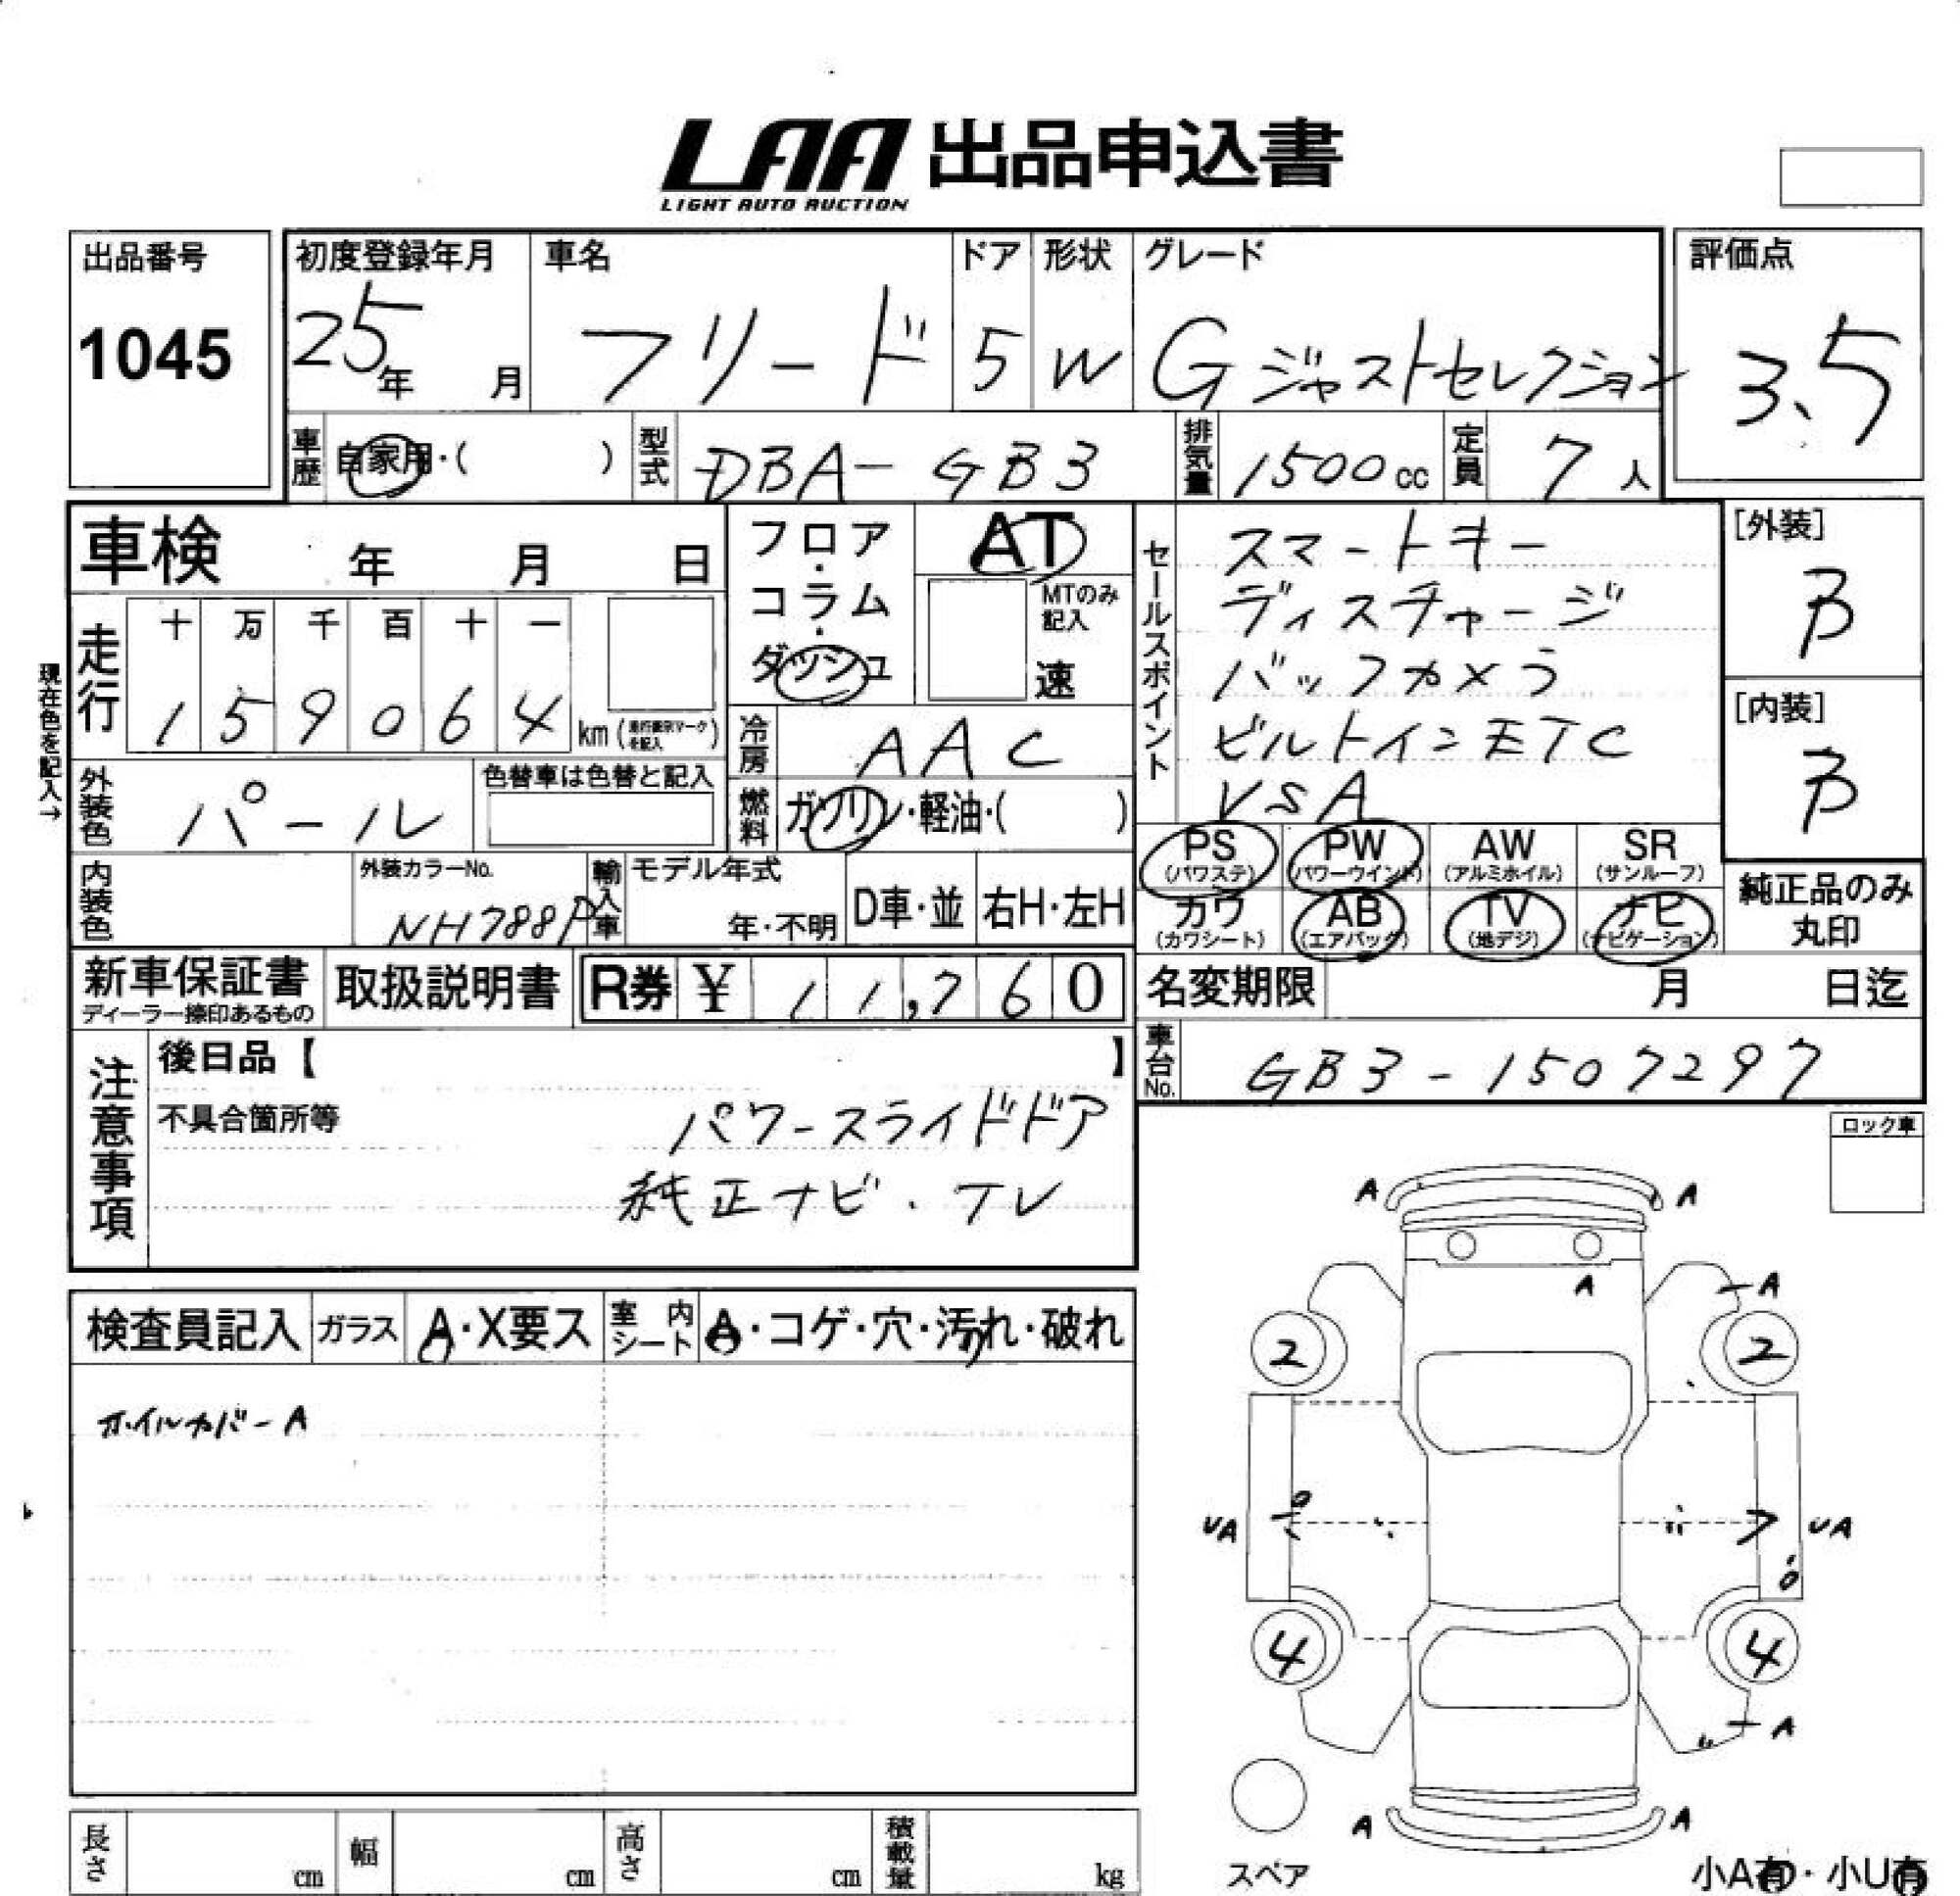 LAA 出品申込書
LIGHT AUTO AUCTION
出品番号
1045
初度登録年月
25年 月
車名
フリード
ドア
5
形状
W
グレード
G ジャストセレクション
評価点
3.5
車歴 自家用・( )
型式 DBA-GB3
排気量 1500cc
定員 7人
車検 年 月 日
走行 十 万 千 百 十 一
1 5 9 0 6 4 km
現在色を記入→
外装色 パール
色替車は色替と記入
内装色
外装カラーNo.
NH788P
輸入車 モデル年式
年・不明
D車・並
右H・左H
フロア・コラム・ダッシュ
AT
MTのみ記入
速
冷房 AAC
燃料 ガソリン・軽油・( )
セールスポイント
スマートキー
ディスチャージ
バックカメラ
ビルトインETC
VSA
[外装]
B
[内装]
B
PS (パワステ)
PW (パワーウインド)
AW (アルミホイル)
SR (サンルーフ)
カワ (カワシート)
AB (エアバック)
TV (地デジ)
ナビ (ナビゲーション)
純正品のみ
丸印
新車保証書
ディーラー捺印あるもの
取扱説明書
R券 ¥ 11,760
名変期限 月 日迄
車台No. GB3-1507297
注意事項
後日品【 】
不具合箇所等
パワースライドドア
純正ナビ・TV
ロック車
検査員記入
ガラス A・X要ス
室内シート A・コゲ・穴・汚れ・破れ
ホイルカバーA
A A
A A
2 2
UA UA
4 4
A
A A
スペア
小A有・小U有
長さ cm
幅 cm
高さ cm
積載量 kg